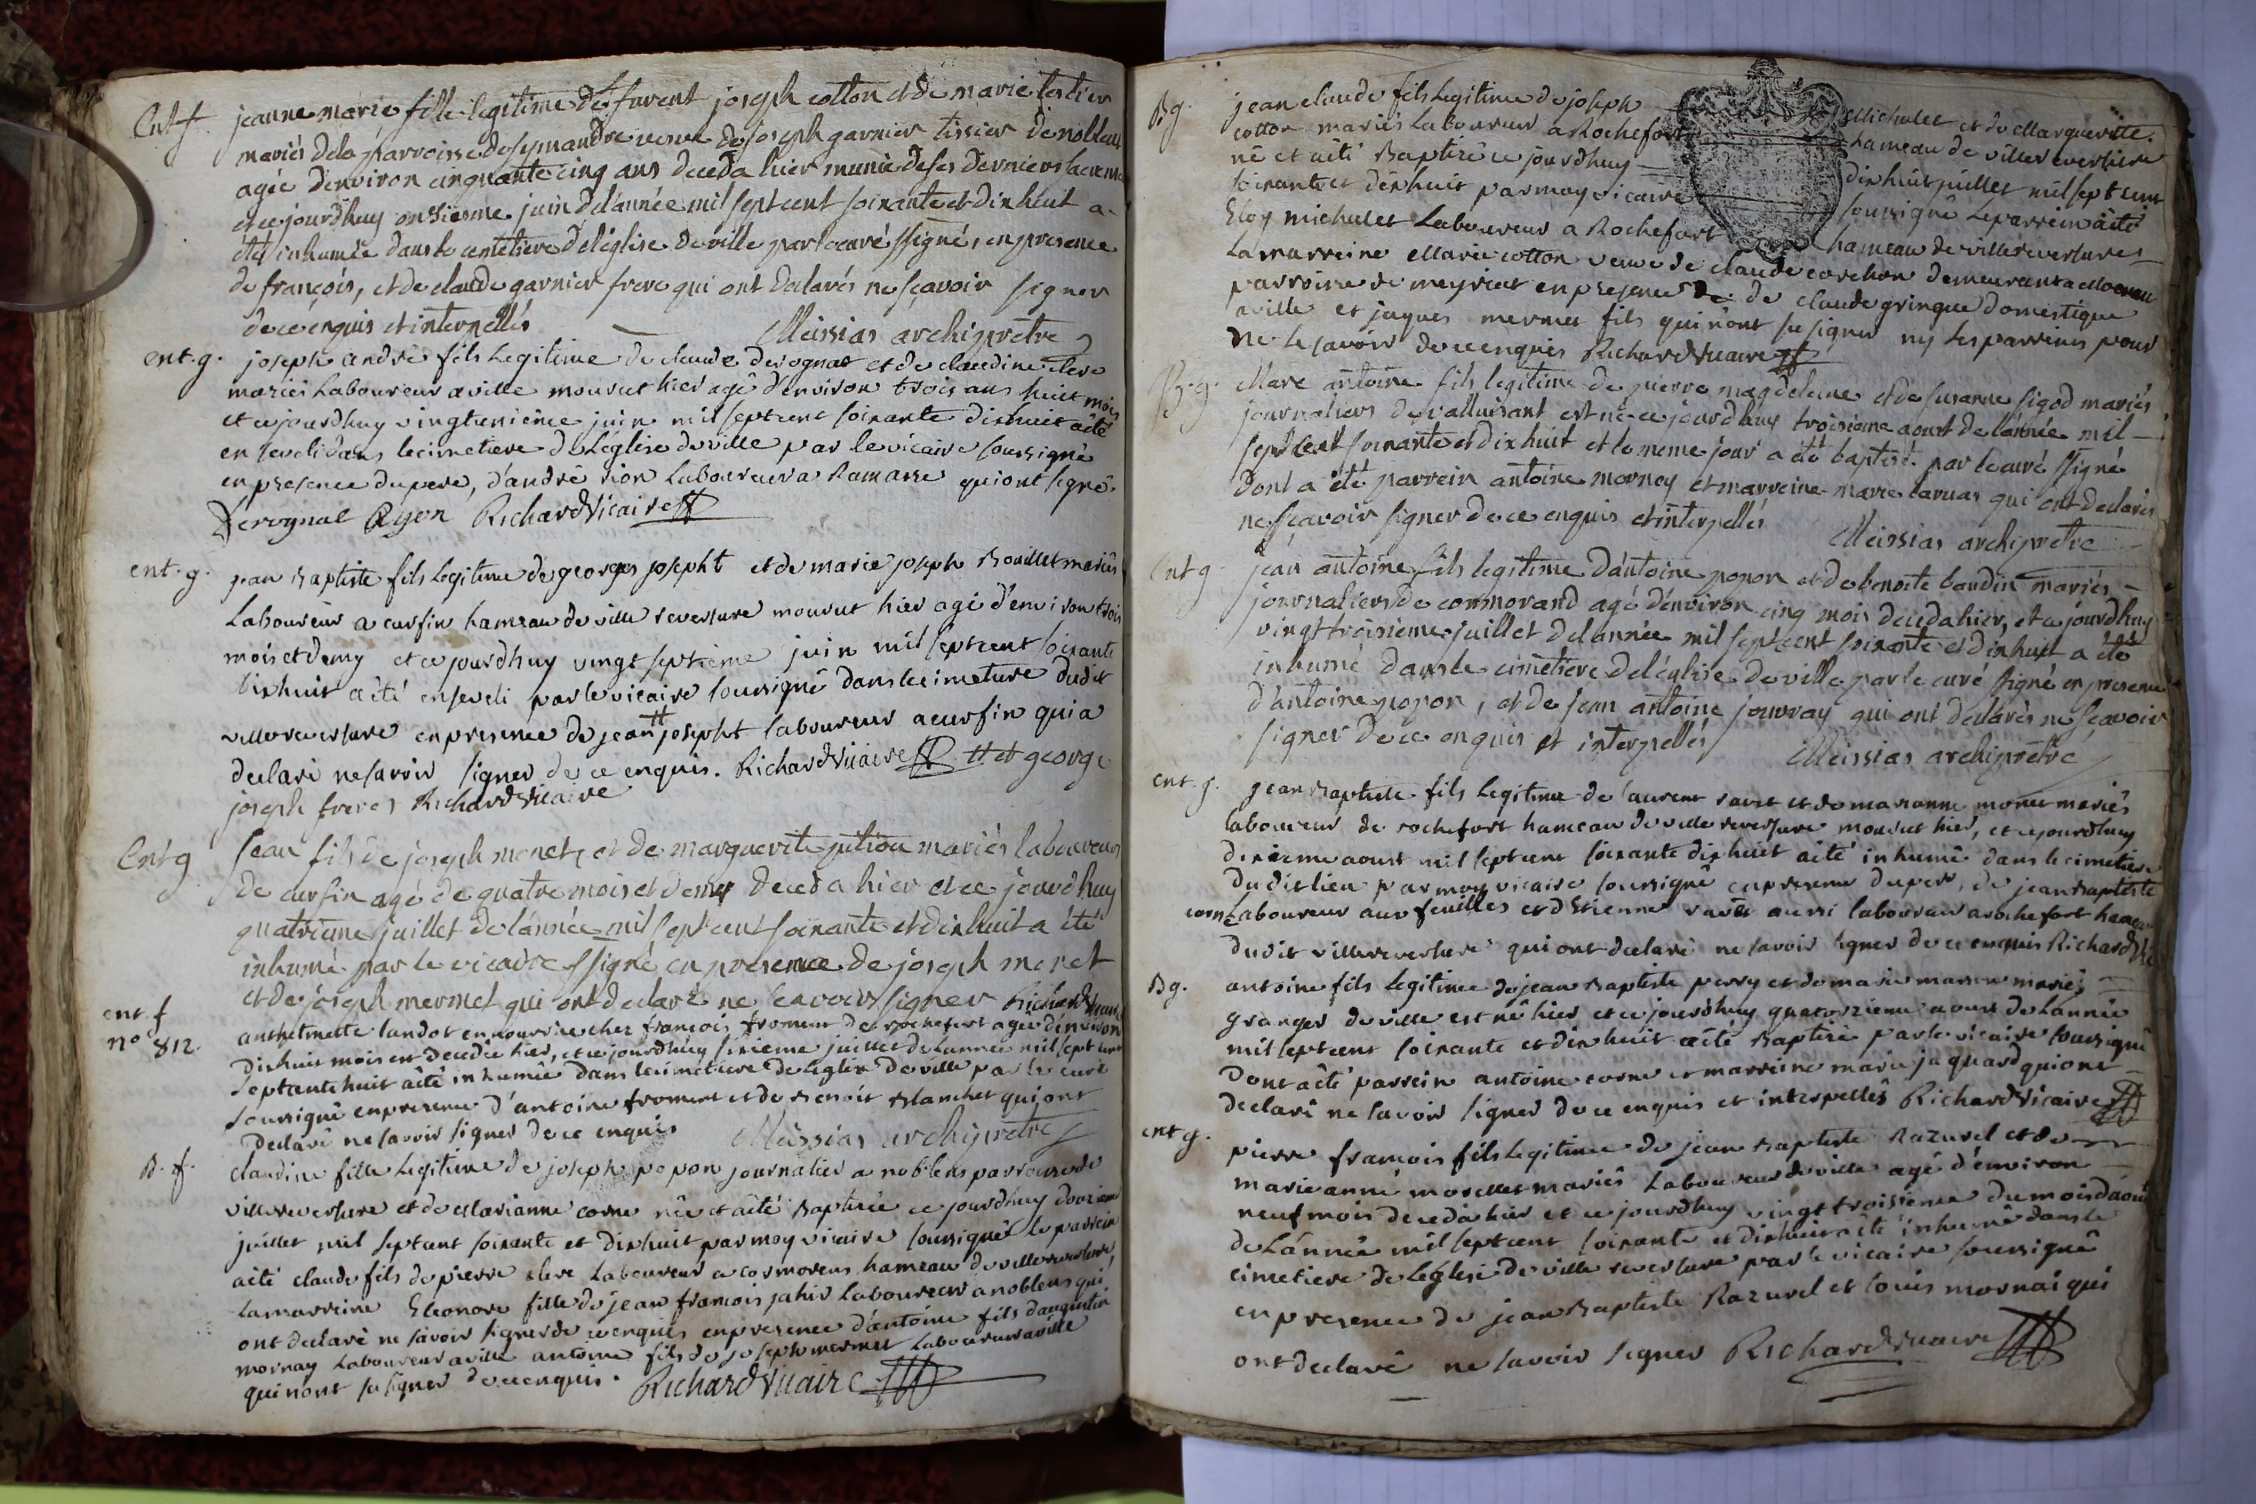 Ent f. jeanne marie fille legitime de furent joseph cotton et de marie tertier
mariés de la parroisse de symandre veuve de joseph garnier tissier de noblens
agée d'environ cinquante cinq ans deceda hier munie de ses derniers sacrem
et ce jourdhuy onzieme juin de l'année mil sept cent soixante et dix huit a
été inhumée dans le cemetiere de l'église de ville par le curé ssigné, en presence
de françois, et de claude garnier frere qui ont declarés ne sçavoir signer
de ce enquis et interpellés Meissias archiprêtre
ent. g. joseph andré fils legitime de claude derognat et de claudine clere
mariés Laboureur a ville mourut hier agé d'environ trois ans huit mois
et ce jourdhuy vingtunieme juin mil sept cent soixante dixhuit a été
enseveli dans le cimetiere de L'église de ville par le vicaire soussigné
en presence du pere, d'andré rion Laboureur a Ramasse qui ont signé.
Derognat Ryon Richard Vicaire
ent. g. jean Baptiste fils legitime de georges josepht et de marie joseph Bouillet mariés
Laboureur a curfin hameau de ville reversure mourut hier agé d'environ trois
mois et demy et ce jourdhuy vingt septieme juin mil sept cent soixante
dixhuit a été enseveli par le vicaire soussigné dans le cimetiere dudit
villereversure en presence de jean # josepht laboureur a curfin qui a
declaré ne savoir signer de ce enquis. Richard Vicaire # et george
joseph freres Richard Vicaire
Ent g jean fils de joseph monet, et de marguerite pution mariés laboureurs
de curfin agé de quatre mois et demy deceda hier et ce jourdhuy
quatrieme juillet de l'année mil sept cent soixante et dixhuit a été
inhumé par le vicaire ssigné en presence de joseph moret
et de joseph mermet qui ont declaré ne scavoir signer Richard Vicaire
ent. f anthelmette landot en nourrice chez françois froment de rochefort agée d'environ
n° 812. dixhuit mois est decedée hier, et ce jourdhuy sixieme juillet de l'année mil sept cent
septante huit a été inhumée dans le cimetiere de l'église de ville par le curé
soussigné en presence d'antoine froment et de Benoit Blanchet qui ont
declaré ne savoir signer de ce enquis Meissias archiprêtre
B. f. claudine fille legitime de joseph popon journalier a noblens parroisse de
villereversure et de Marianne corne née et a été Baptisée ce jourdhuy douzieme
juillet mil sept cent soixante et dixhuit par moy vicaire soussigné le parrein
a été claude fils de pierre clere Laboureur a cormorens hameau de villereversure,
la marreine Eleonore fille de jean francois jahir Laboureur a noblens qui
ont declaré ne savoir signer de ce enquis en presence d'antoine fils d'augustin
mornay Laboureur a ville antoine fils de joseph mermet Laboureur a ville
qui n'ont su signer de ce enquis. Richard Vicaire
B g. jean claude fils Legitime de joseph Michalet et de Marguerite
cotton mariés Laboureur a Rochefort hameau de villereversure
né et a été Baptisé ce jourdhuy dixhuit juillet mil sept cent
soixante et dixhuit par moy vicaire soussigné le parrein a été
Eloy michalet Laboureur a Rochefort hameau de villereversure
La marreine Marie cotton veuve de claude corchon demeurant a
parroisse de meyriat en presence de de claude gringue domestique
a ville et jaques mermet fils qui n'ont su signer ny les parreins pour
ne le savoir de ce enquis Richard Vicaire
B. g. Marc antoine fils legitime de pierre magdeleine et de susanne sigod mariés
journaliers de valluisant est né ce jourdhuy troisieme aoust de l'année mil
sept cent soixante et dixhuit et le meme jour a été baptisé par le curé ssigné
dont a été parrein antoine mornay et marreine marie caruas qui ont declarés
ne sçavoir signer de ce enquis et interpellés Meissias archiprêtre
Ent g. jean antoine fils legitime d'antoine popon et de benoite baudin mariés
journaliers de commorand agé d'environ cinq mois deceda hier, et ce jourdhuy
vingt troisieme juillet de l'année mil sept cent soixante et dixhuit a été
inhumé dans le cimetiere de l'église de ville par le curé ssigné en presence
d'antoine popon, et de jean antoine jouvray qui ont declarés ne sçavoir
signer de ce enquis et interpellés Meissias archiprêtre
ent. g. jean Baptiste fils legitime de laurent ravet et de marianne monet mariés
laboureur de rochefort hameau de villereversure mourut hier, et ce jourdhuy
dixieme aoust mil sept cent soixante dixhuit a été inhumé dans le cimetiere
du dit lieu par moy vicaire soussigné en presence du pere, de jean Baptiste
corne Laboureur aux feuilles et d'Etienne ravet aussi laboureur a rochefort hameau
dudit villereversure qui ont declaré ne savoir signer de ce enquis Richard Vic
B g. antoine fils legitime de jean Baptiste perry et de marie maren mariés
granger de ville est né hier et ce jourdhuy quatorzieme aoust de L'année
mil sept cent soixante et dixhuit a été Baptisé par le vicaire soussigné
dont a été parrein antoine corne et marreine marie jaquard qui ont
declaré ne savoir signer de ce enquis et interpellés Richard Vicaire
ent g. pierre francois fils legitime de jean Baptiste Razurel et de
marie anne morellet mariés Laboureur de ville agé d'environ
neuf mois deceda hier et ce jourdhuy vingt troisieme du mois d'aout
de L'année mil sept cent soixante et dixhuit a été inhumé dans le
cimetiere de L'église de ville reversure par le vicaire soussigné
en presence de jean Baptiste Razurel et louis mornai qui
ont declaré ne savoir signer Richard Vicaire